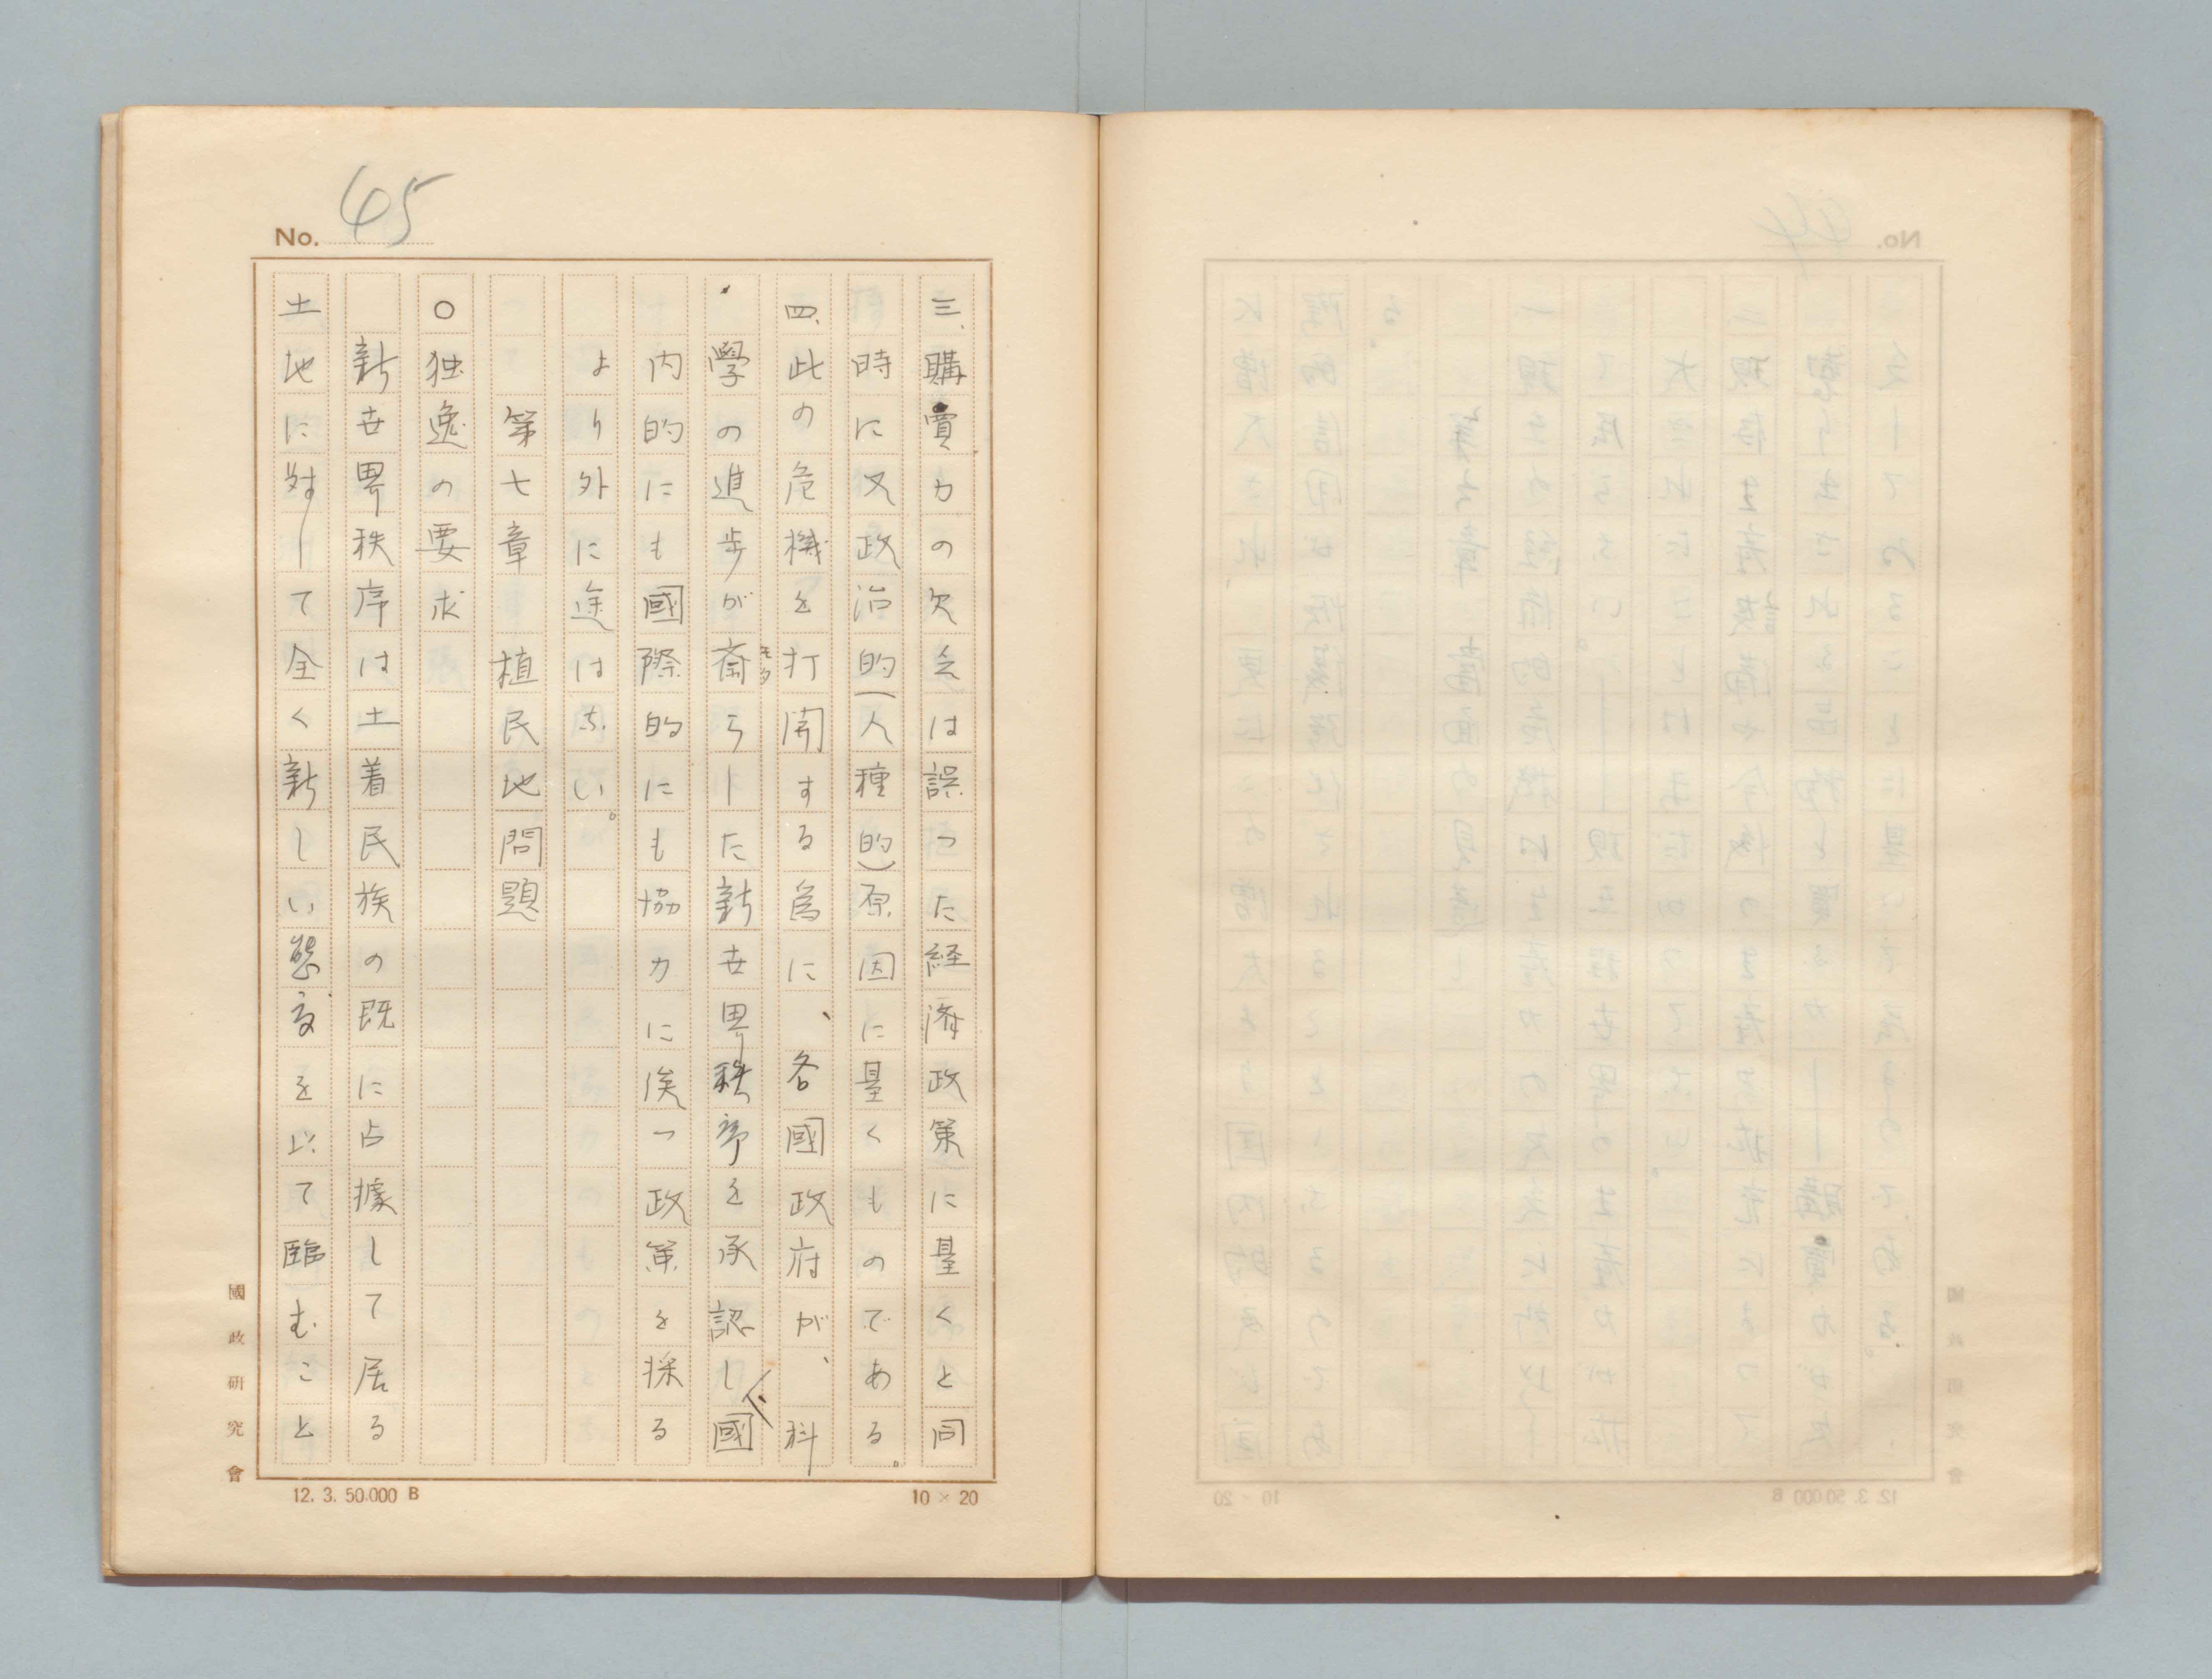 No. 45
三、購買力の欠乏は誤つた経済政策に基くと同
時に又政治的(人種的)原因に基くものである。
四、此の危機を打開する為に、各國政府が、科
學の進歩が斎モタらした新世界秩序を承認し、國
内的にも國際的にも協力に俟つ政策を採る
より外に途はない。
第七章 植民地問題
○独逸の要求
新世界秩序は土着民族の既に占據して居る
土地に対して全く新しい態度を以て臨むこと
國政研究會
12. 3. 50.000 B
10 × 20